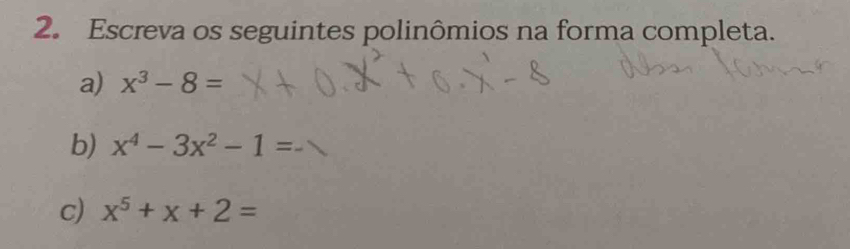 2. Escreva os seguintes polinômios na forma completa.
a) x³ − 8 = x + 0.x² + 0.x¹ - 8
b) x⁴ − 3x² − 1 = -
c) x⁵ + x + 2 =